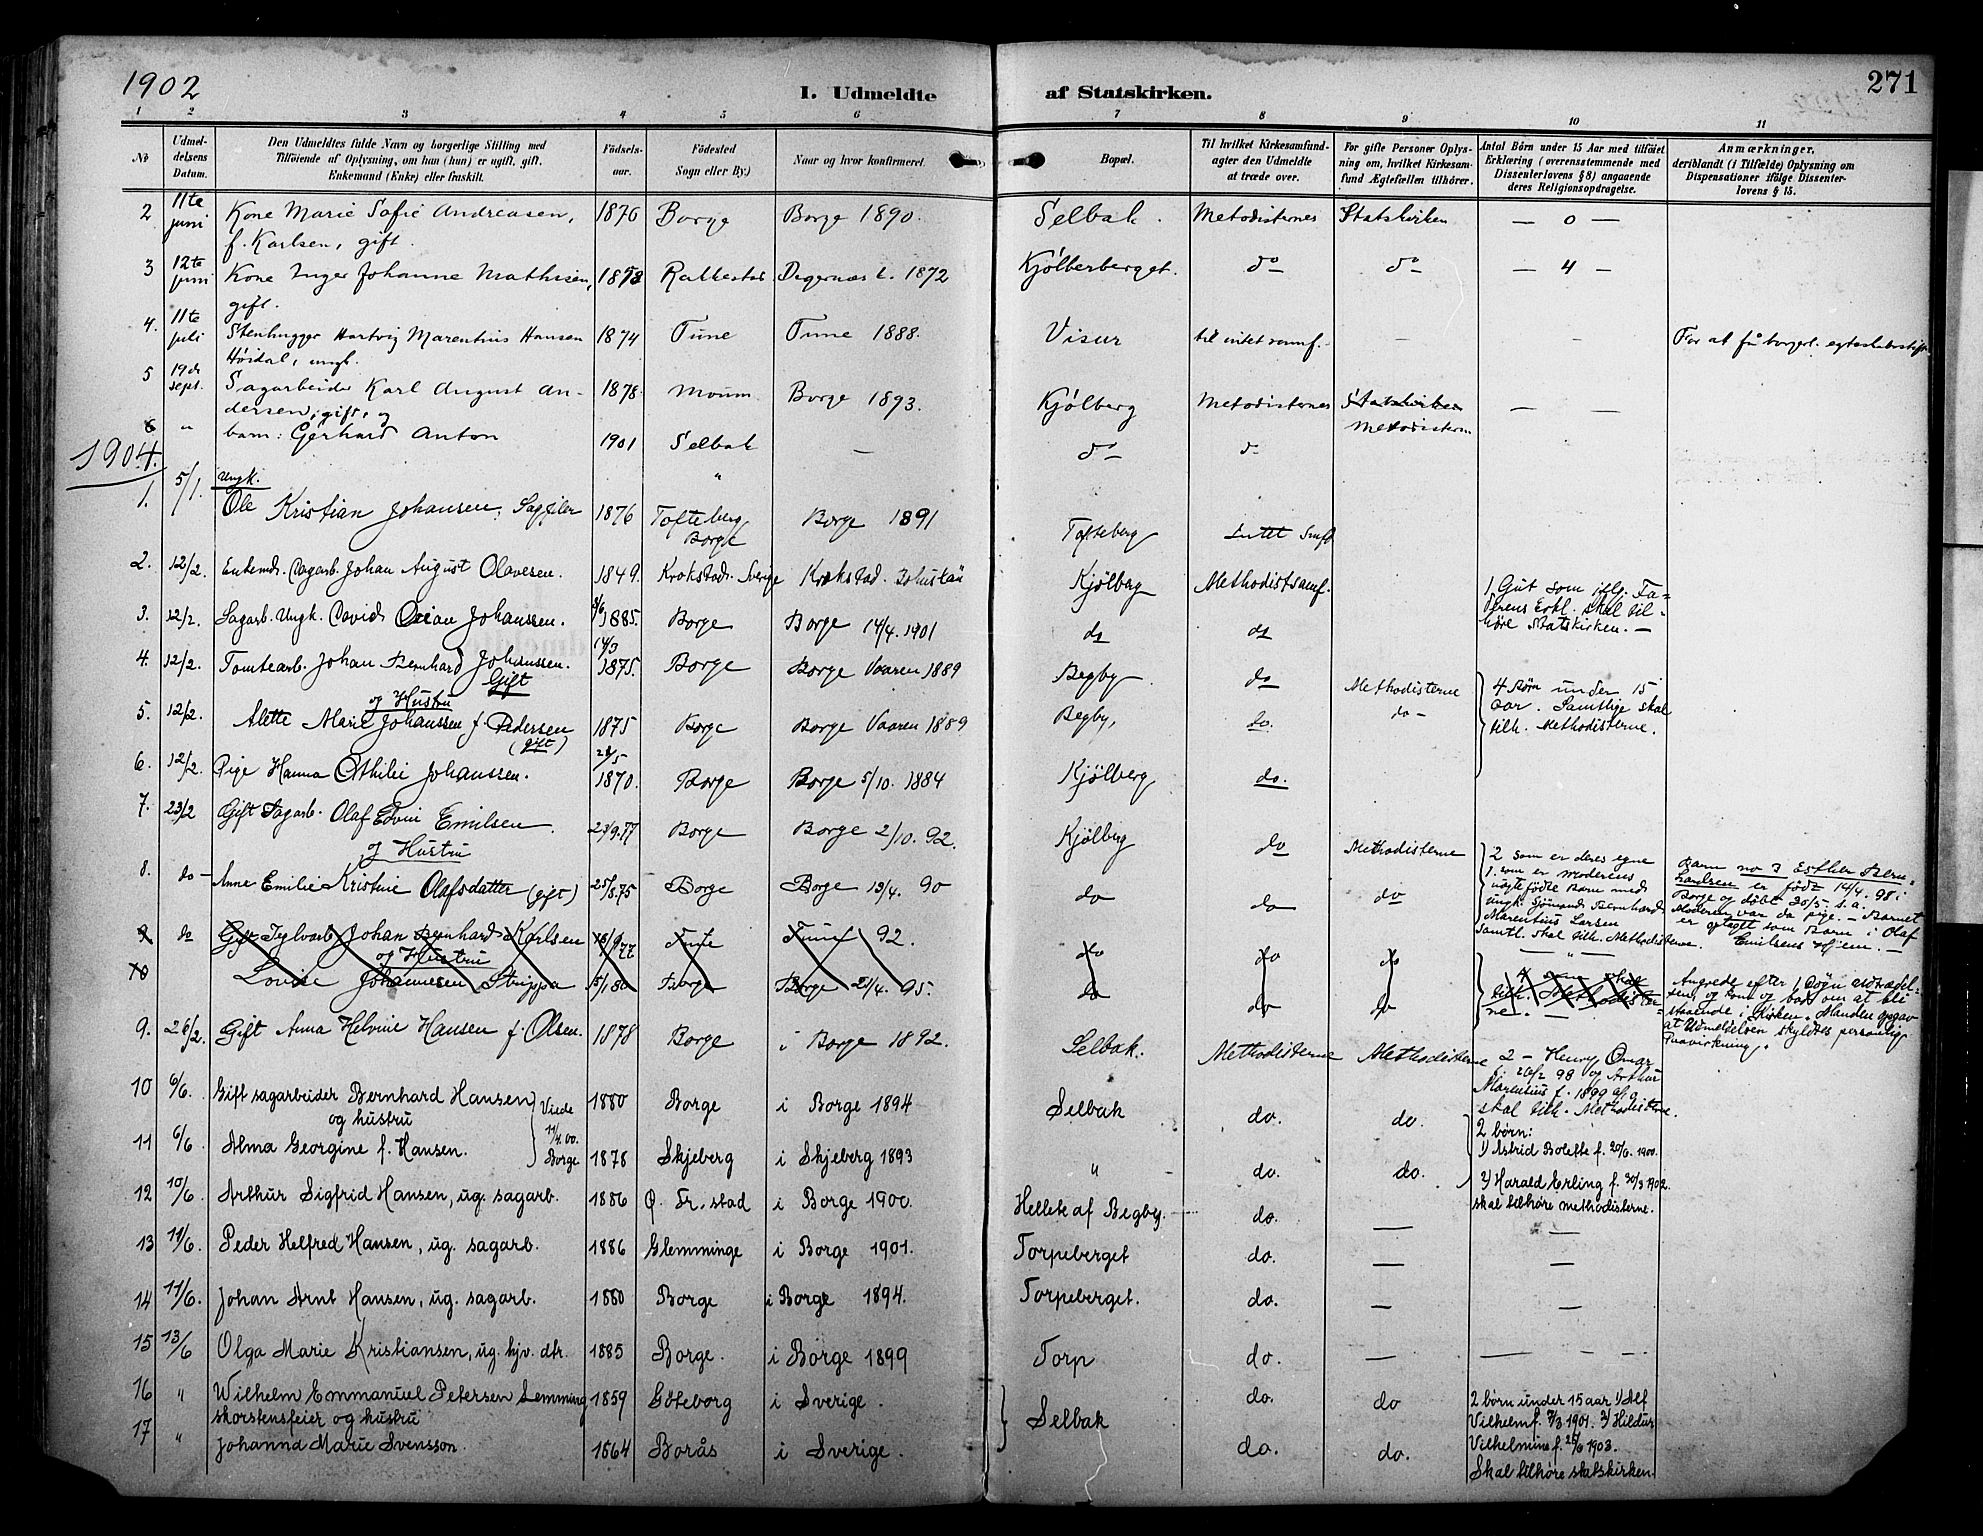 1902
I. Udmeldte af Statskirken.
271
1 2 3 4 5 6 7 8 9 10 11
No
Udmeldelsens Datum.
Den Udmeldtes fulde Navn og borgerlige Stilling med
Tilføiende af Oplysning, om han (hun) er ugift, gift.
Enkemand (Enke) eller fraskilt.
Fødselsaar.
Fødested
Sogn eller By.)
Naar og hvor konfirmeret.
Bopæl.
Til hvilket Kirkesamfund-
agter den Udmeldte
at træde over.
For gifte Personer Oplys-
ning om, hvilket Kirkesam-
fund Ægtefællen tilhører.
Antal Børn under 15 Aar med tilføiet
Erklæring (overensstemmende med
Dissenterlovens § 8) angaaende
deres Religionsopdragelse.
Anmærkninger,
deriblandt (i Tilfælde) Oplysning om
Dispensationer ifølge Dissenter-
lovens § 15.
2 11te juni Kone Marie Sofie Andreasen, 1876 Borge Borge 1890. Selbak. Metodisternes Statskirken — 0 —
f. Karlsen, gift.
3 12te juni Kone Inger Johanne Mathisen, Rakkestad Degernæs k. 1872 Kjølberberget. do do — 4 —
gift.
4. 11te juli Stenhugger Hartvig Marentius Hansen 1874 Tune Tune 1888. Visur til intet samf. — — For at få borgerl. egteskabsstift
Høidal, ungk.
5 19de sept. Sagarbeider Karl August An- 1878. Moum Borge 1893. Kjølberg Metodisternes Statskirken — —
dersen, gift, og Metodistern
6 " barn: Gerhard Anton 1901 Selbak — do d-
1904.
1. 5/1. Ungk.
Ole Kristian Johansen, Sagfiler 1876 Tofteberg Borge Borge 1891 Tofteberg Intet Smf
2. 12/2. Enkemd. Sagarb. Johan August Olavesen. 1849. Krokstad. Sverige Krokstad. Bohuslän Kjølberg Methodistsamf. 1 Gut som iflg. Fa-
derens Erkl. skal til-
høre Statskirken. —
3. 12/2. Sagarb. Ungk. David Johanssen. 1885. Borge Borge 14/4. 1901 do do
4. 12/2. Tomtearb. Johan Bernhard Johanssen. 14/3 1875. Borge Borge Vaaren 1889 Begby. do Methodisterne 4 Børn under 15
Gift
og Hustru
aar. Samtlige skal
tilh. Methodisterne.
5. 12/2. Alette Marie Johanssen f. Pedersen 1875 Borge Borge Vaaren 1889 Begby, do. do —
(gift)
6. 12/2. Pige Hanna Othilie Johanssen. 1870. Borge Borge 5/10. 1884 Kjølberg do.
7. 23/2 Gift Sagarb. Olaf Edvin Emilsen. Borge Borge 2/10. 92. Kjølberg do Methodisterne
og Hustru
2 som er deres egne
1. som er moderens
uægte fødte Barn med
ungk. Sjømand Bernhard
Marentius Larsen
Samtl. skal tilh. Methodisterne.
Barn no 3 Esther Bern-
hardsen er født 14/4. 98 i
Borge og døbt 30/5 s.a.
Moderen var da pige. — Barnet
er optaget som Barn i Olaf
Emilsens Hjem. —
8. do — Anne Emilie Kristine Olafsdatter (gift) 25/8.75 Borge Borge 13/4. 90 do do do
9 do Gift Teglvarb. Johan Bernhard Karlsen Tune Tune 92. do do do
og Hustru
10 Lovise Johannesen Strippa 5/1.80 Borge Borge 21/4. 95. do do do
skal
tilh. Methodister-
ne.
Angrede efter 1 Døgn Udtrædel-
sen, og kom og bad om at bli
staaende i Kirken. Manden opgav
at Udmeldelsen skyldtes personlig
Paavirkning.
9. 26/2. Gift Anna Helvine Hansen f. Olsen. 1878 Borge i Borge 1892. Selbak. Methodisterne Methodisterne 2 — Henry Omar
f. 20/2 98 og Arthur
Marentius f. 1899
skal tilh. Methodisterne.
10 6/6. Gift sagarbeider Bernhard Hansen 1880 Borge i Borge 1894 Selbak do. do.
og hustru
Viede
11/4.00.
Borge
11 6/6 Alma Georgine f. Hansen. 1878 Skjeberg i Skjeberg 1893 " do. do.
2 børn:
1) Astrid Bolette f. 20/6. 1900.
2) Harald Erling f. 30/3 1902.
skal tilhøre methodisterne.
12 10/6. Arthur Sigfrid Hansen, ug. sagarb. 1886 Ø. Fr. stad i Borge 1900. Hellek af Begby. do. — —
13 11/6. Peder Helfred Hansen, ug. sagarb. 1886 Glemminge i Borge 1901. Torpeberget do. — —
14 11/6. Johan Arnt Hansen, ug. sagarb. 1880 Borge i Borge 1894. Torpeberget. do. — —
15 13/6 Olga Marie Kristiansen, ug. hjv. dtr. 1885 Borge. i Borge 1899 Torp do. — —
16 " Wilhelm Emmanuel Petersen Lemming 1859 Göteborg i Sverige. Selbak do. do 2 børn under 15 aar 1) Alf
skorstensfeier og hustru
Vilhelm f. 7/3 1901. 2) Hildur
17 " Johanna Marie Svensson. 1864 Borås i Sverige. do. do. Vilhelmine f. 1903.
Skal tilhøre statskirken.